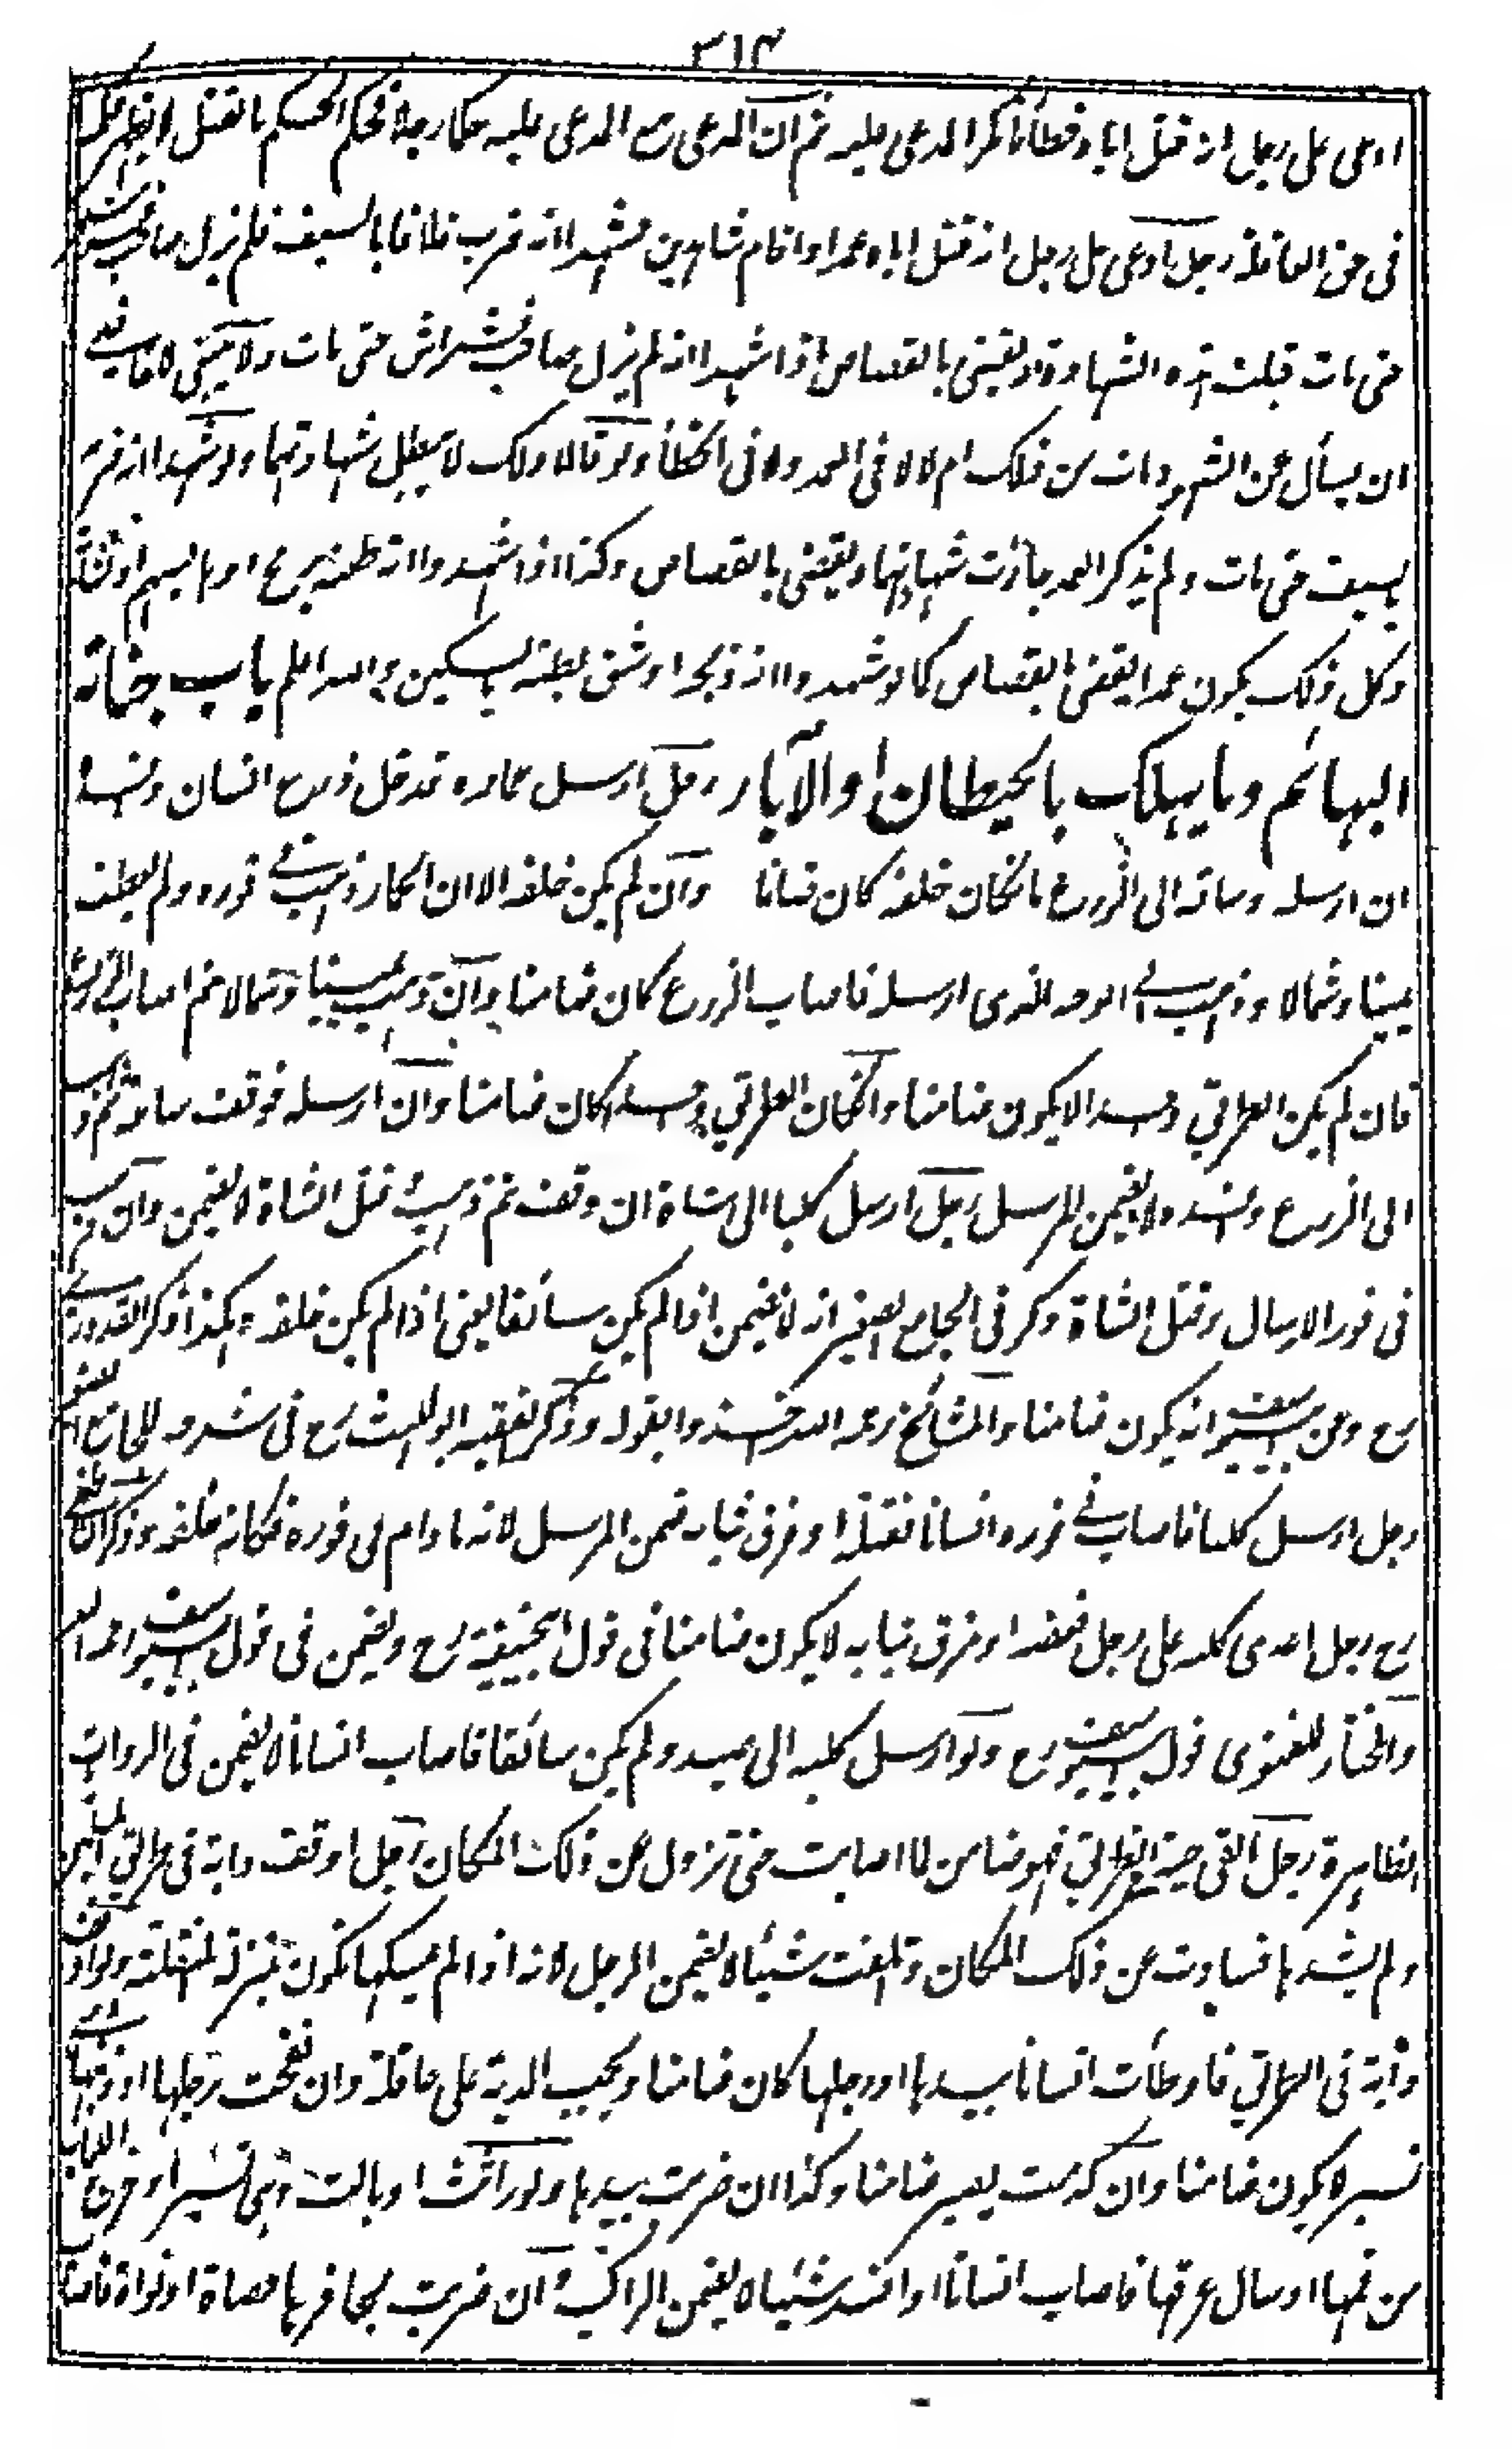 ٣١٤
ادعى على رجل انه قتل اباه خطأ فانكر المدعى عليه ثم ان المدعى مع المدعى عليه حكما رجلا فحكم الحكم بالقتل
فى حق العاقلة رجل ادعى على رجل انه قتل اباه عمدا واقام شاهدين فشهدا انه ضرب فلانا بالسيف فلم يزل صاحب فراش
حتى مات قبلت هذه الشهادة ويقضى بالقصاص اذا شهدا انه لم يزل صاحب فراش حتى مات ولا ينبغى للقاضى
ان يسأل عن الشهود مات من ذلك ام لا لا فى العمد ولا فى الخطأ ولو قالا ذلك لا يبطل شهادتهما ولو شهدا انه ضربه
بالسيف حتى مات ولم يذكرا العمد جازت شهادتهما ويقضى بالقصاص وكذا اذا شهدوا انه طعنه برمح او رماه بسهم او نشابة
وكل ذلك يكون عمدا يقضى بالقصاص كما لو شهدوا انه ذبحه او شق بطنه بالسكين والله اعلم باب جناية
البهائم وما يهلك بالحيطان والآبار رجل ارسل حماره فدخل زرع انسان وافسد
ان ارسله وساقه الى الزرع بان كان خلفه كان ضامنا وان لم يكن خلفه الا ان الحمار ذهب فى فوره ولم يعطف
يمينا وشمالا وذهب الى الوجه الذى ارسله فاصاب الزرع كان ضامنا وان ذهب يمينا وشمالا ثم اصاب الزرع
فان لم يكن الطريق واحدا لا يكون ضامنا وان كان الطريق واحدا كان ضامنا وان ارسله فوقف ساعة ثم ذهب
الى الزرع وافسده لا يضمن المرسل رجل ارسل كلبا الى شاة ان وقف ثم ذهب وقتل الشاة لا يضمن وان ذهب
فى فور الارسال وقتل الشاة ذكر فى الجامع الصغير انه لا يضمن اذا لم يكن سائقا يعنى اذا لم يكن خلفه هكذا ذكر القدورى
رح وعن ابى يوسف انه يكون ضامنا والمشائخ رحمه الله اخذوا بقوله وذكر الفقيه ابو الليث رح فى شرح الجامع الصغير
رجل ارسل كلبا فاصاب فى فوره انسانا فقتله او مزق ثيابه ضمن المرسل لانه ما دام فى فوره فكانه خلفه وذكر
رح رجل اغرى كلبه على رجل فعضه او مزق ثيابه لا يكون ضامنا فى قول ابى حنيفة رح ويضمن فى قول ابى يوسف رحمه الله
والمختار للفتوى قول ابى يوسف رح ولو ارسل كلبه الى صيد ولم يكن سائقا فاصاب انسانا لا يضمن فى الروايات
الظاهرة رجل القى حية فى الطريق فهو ضامن لما اصابت حتى تزول عن ذلك المكان رجل اوقف دابة فى طريق المسلمين
ولم يشدها فسارت عن ذلك المكان واتلفت شيئا لا يضمن الرجل لانه اذا لم يمسكها تكون بمنزلة المنفلتة ولو اوقف
دابة فى الطريق فاوطأت انسانا بيدها او رجلها كان ضامنا ويجب الدية على عاقلته وان نفحت برجلها او ذنبها وهى
تسير لا يكون ضامنا وان كدمت يصير ضامنا وكذا ان ضربت بيدها ولو راثت او بالت وهى تسير او خرج اللعاب
من فمها او سال عرقها فاصاب انسانا او افسد شيئا لا يضمن الراكب وان ضربت بحافرها حصاة او نواة فاصاب